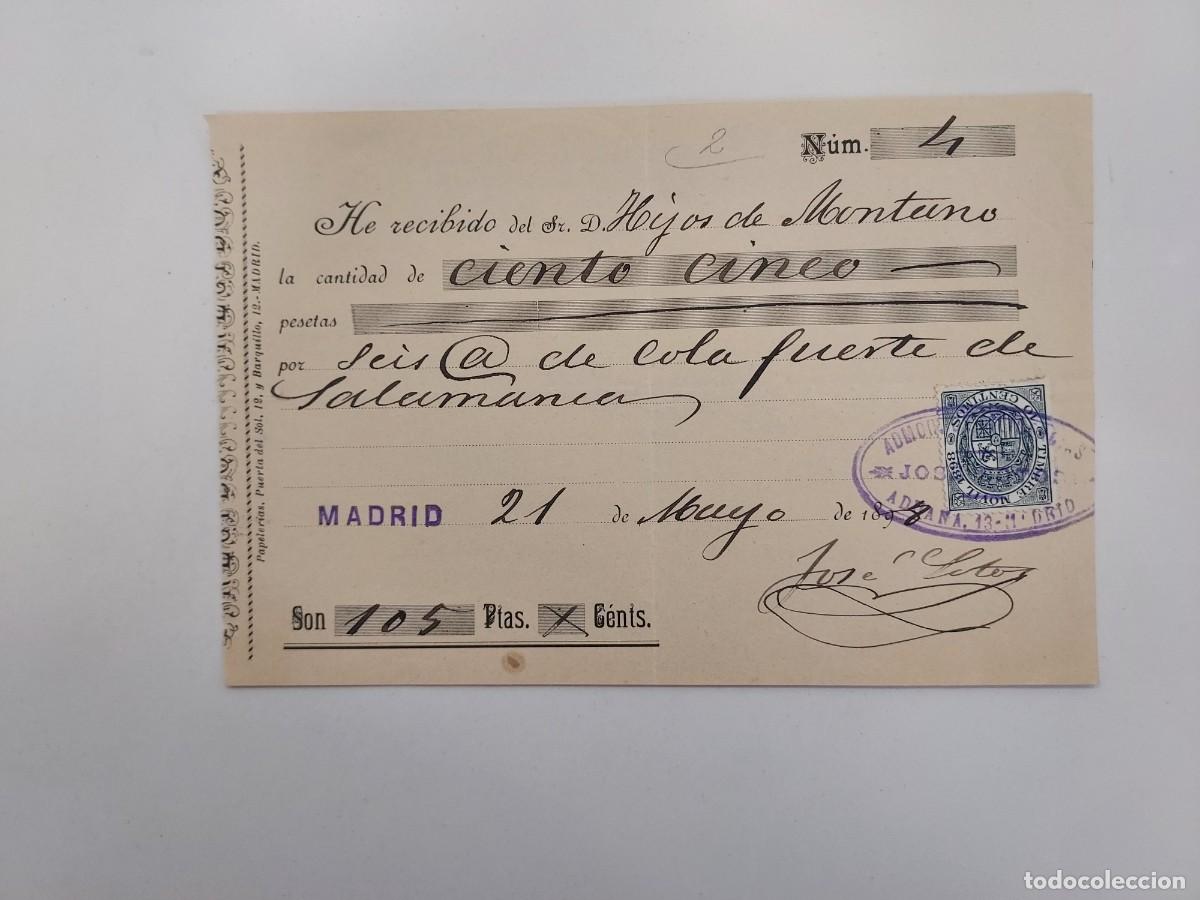 2 Núm. 4
He recibido del Sr. D. Hijos de Montano
la cantidad de ciento cinco
pesetas
por seis @ de cola fuerte de
Salamanca
MADRID 21 de Mayo de 1898
José
Son 105 Ptas. X Cénts.
Papelerías, Puerta del Sol, 12, y Barquillo, 12.-MADRID.
TIMBRE MOVIL 1898
10 CENTIMOS
JOS
ADUANA, 13-MADRID
todocoleccion